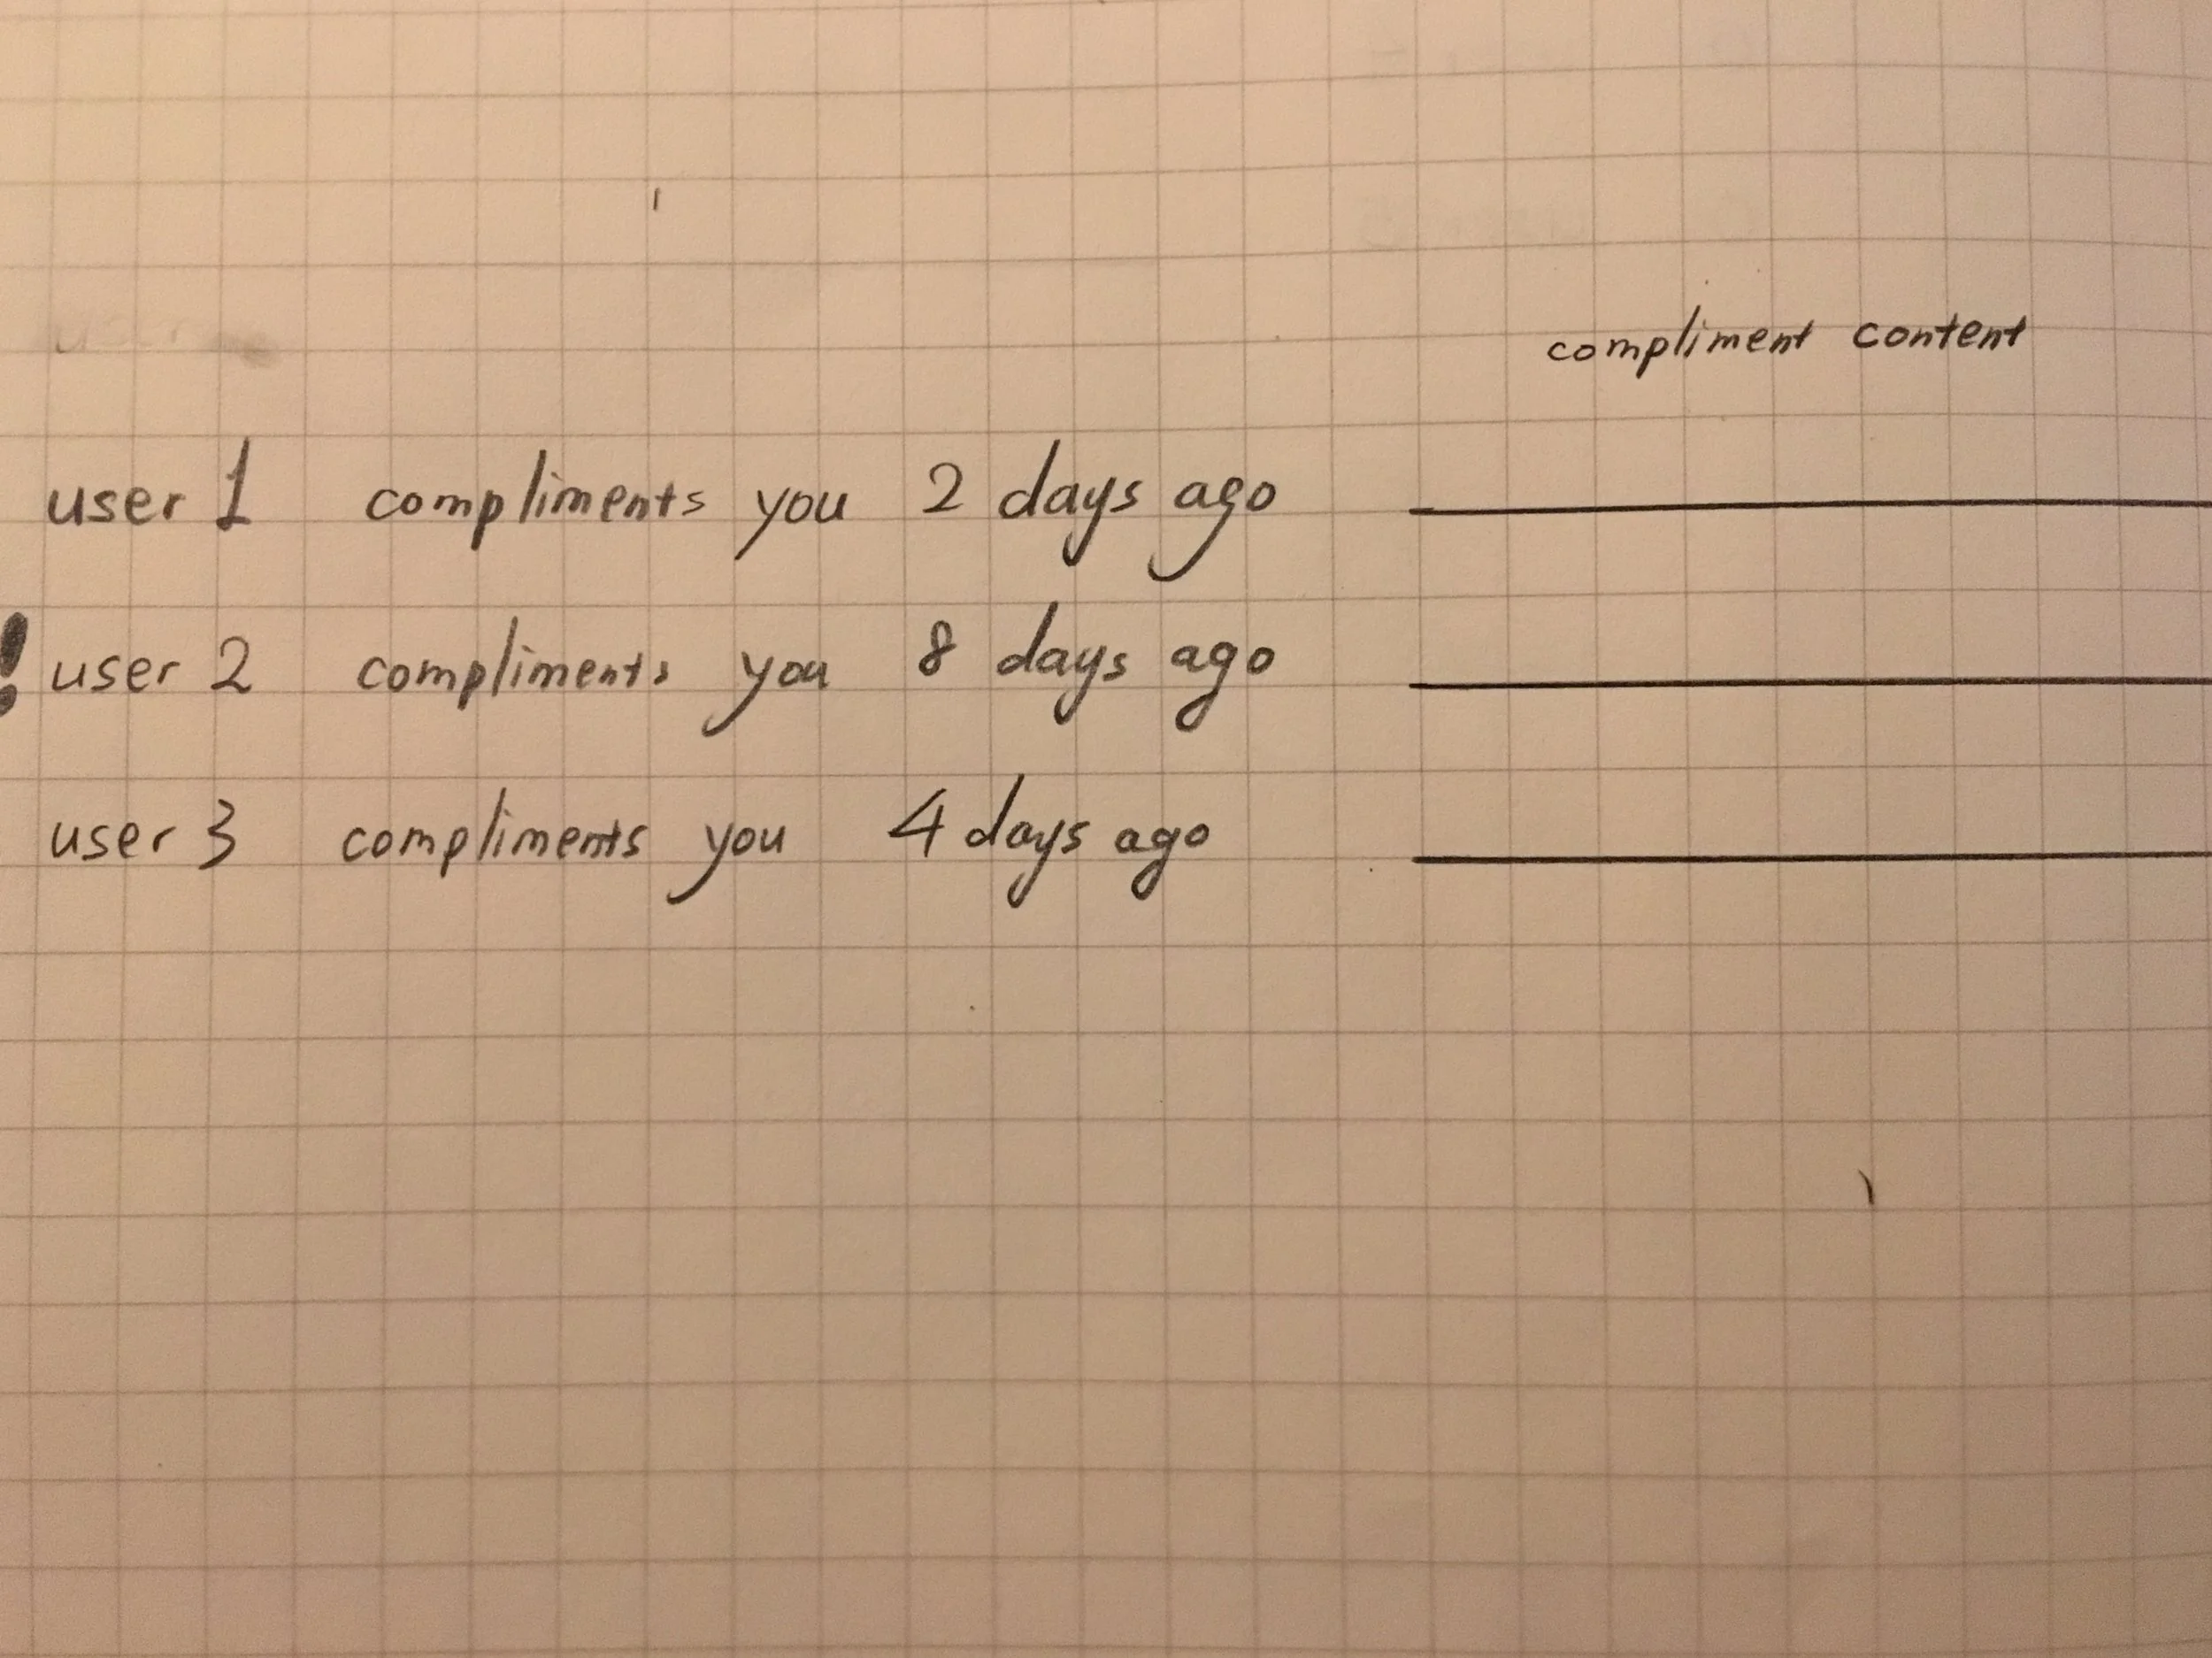 compliment content
user 1 compliments you 2 days ago
! user 2 compliments you 8 days ago
user 3 compliments you 4 days ago